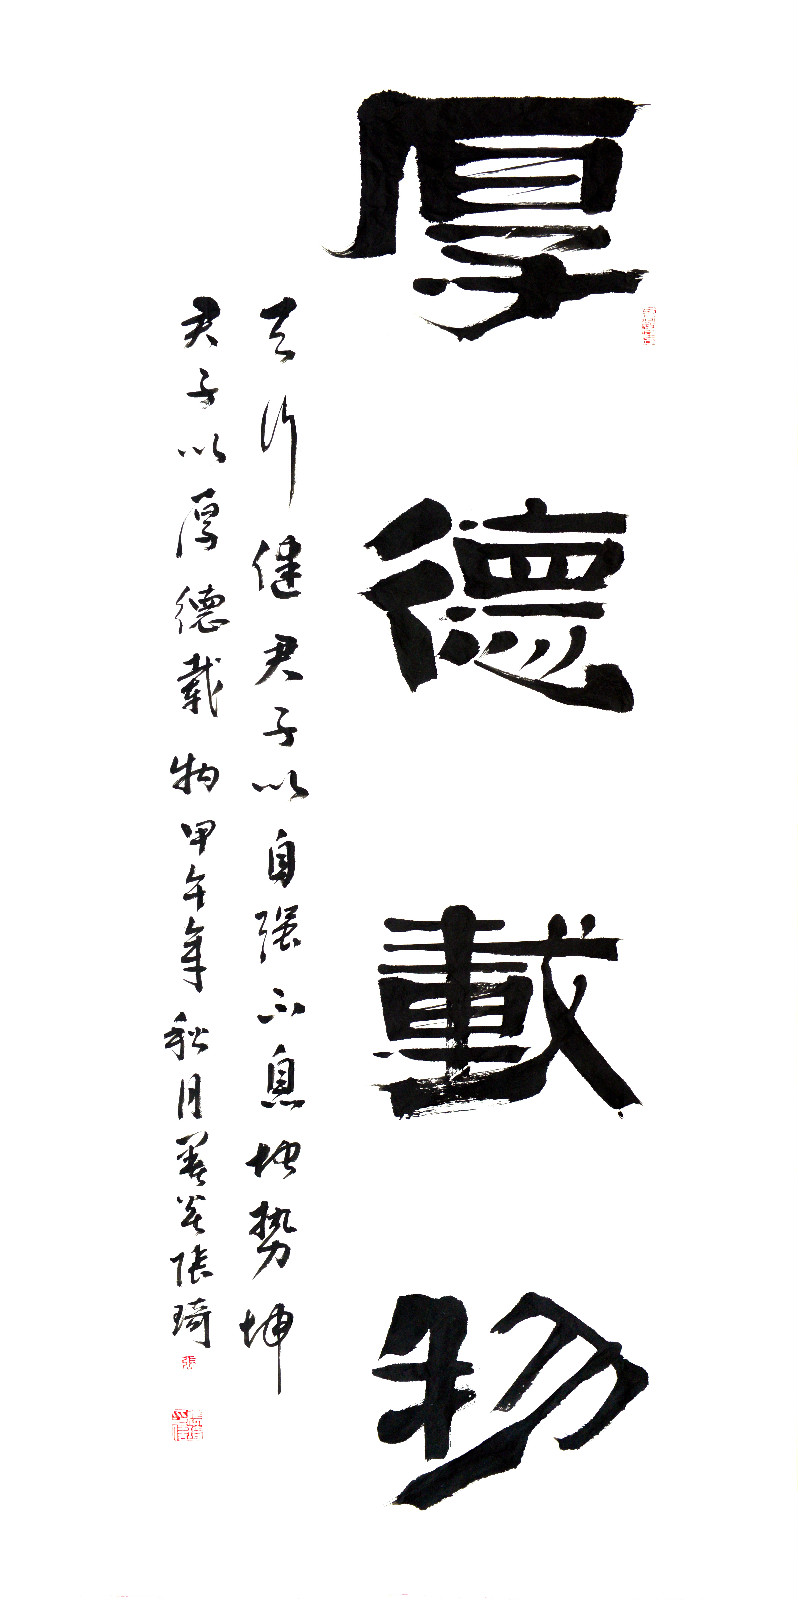 厚德載物
天行健君子以自强不息地势坤
君子以厚德载物甲午年秋月姜炎张琦